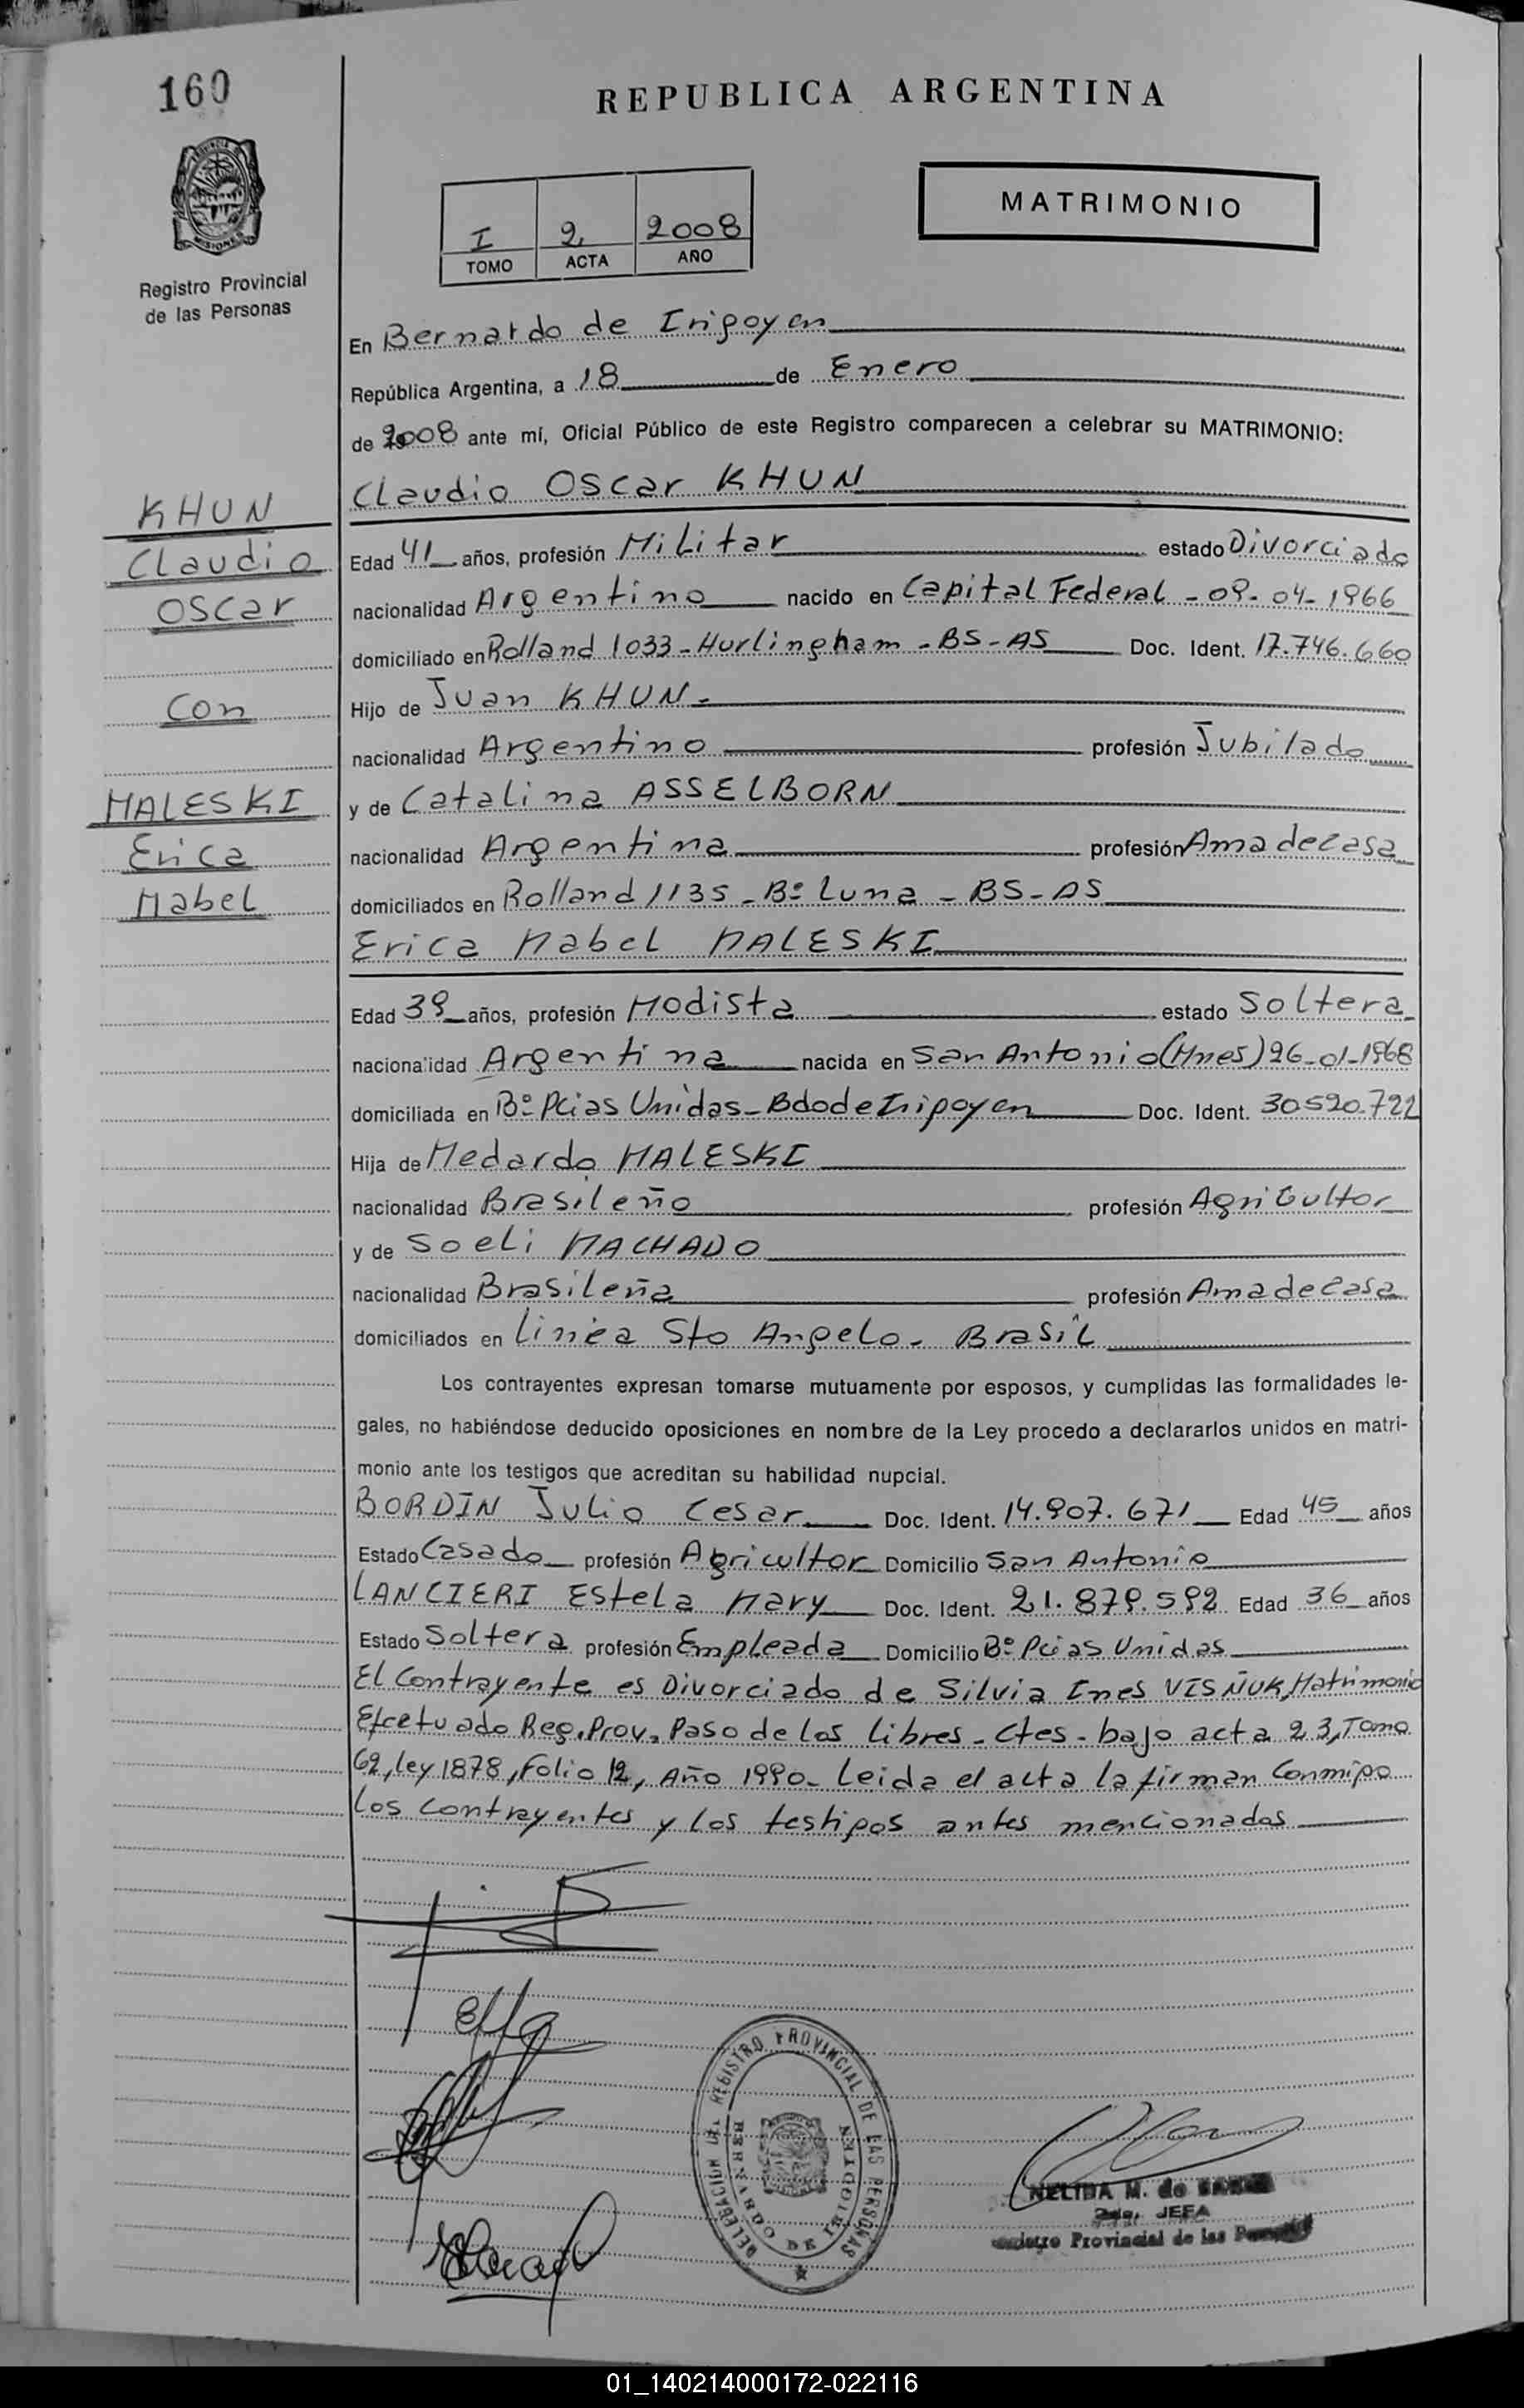 160
REPUBLICA ARGENTINA
MISIONES
Registro Provincial
de las Personas
I 2 2008
TOMO ACTA AÑO
MATRIMONIO
En Bernardo de Irigoyen
República Argentina, a 18 de Enero
de 2008 ante mí, Oficial Público de este Registro comparecen a celebrar su MATRIMONIO:
KHUN
Claudio
Oscar
Con
MALESKI
Erica
Mabel
Claudio Oscar KHUN
Edad 41 años, profesión Militar estado Divorciado
nacionalidad Argentino nacido en Capital Federal - 09-04-1966
domiciliado en Rolland 1033 - Hurlingham - BS-AS Doc. Ident. 17.746.660
Hijo de Juan KHUN -
nacionalidad Argentino profesión Jubilado
y de Catalina ASSELBORN
nacionalidad Argentina profesión Ama de casa
domiciliados en Rolland 1135 - Bº Luna - BS-AS
Erica Mabel MALESKI
Edad 39 años, profesión Modista estado Soltera
nacionalidad Argentina nacida en San Antonio (Mnes) 26-01-1968
domiciliada en Bº Pcias Unidas - Bdo de Irigoyen Doc. Ident. 30.520.722
Hija de Medardo MALESKI
nacionalidad Brasileño profesión Agricultor
y de Soeli MACHADO
nacionalidad Brasileña profesión Ama de casa
domiciliados en Linea Sto Angelo - Brasil
Los contrayentes expresan tomarse mutuamente por esposos, y cumplidas las formalidades le-
gales, no habiéndose deducido oposiciones en nombre de la Ley procedo a declararlos unidos en matri-
monio ante los testigos que acreditan su habilidad nupcial.
BORDIN Julio Cesar Doc. Ident. 14.907.671 Edad 45 años
Estado Casado profesión Agricultor Domicilio San Antonio
LANCIERI Estela Mary Doc. Ident. 21.879.592 Edad 36 años
Estado Soltera profesión Empleada Domicilio Bº Pcias Unidas
El Contrayente es Divorciado de Silvia Ines VISÑUK, Matrimonio
Efectuado Reg. Prov. Paso de los Libres - Ctes - bajo acta 23, Tomo
62, ley 1878, Folio 12, Año 1990 - Leida el acta la firman Conmigo
los contrayentes y los testigos antes mencionados
DELEGACION DEL REGISTRO PROVINCIAL DE LAS PERSONAS
BERNARDO DE IRIGOYEN
NELIDA M. de
2da. JEFA
Registro Provincial de las
01_140214000172-022116